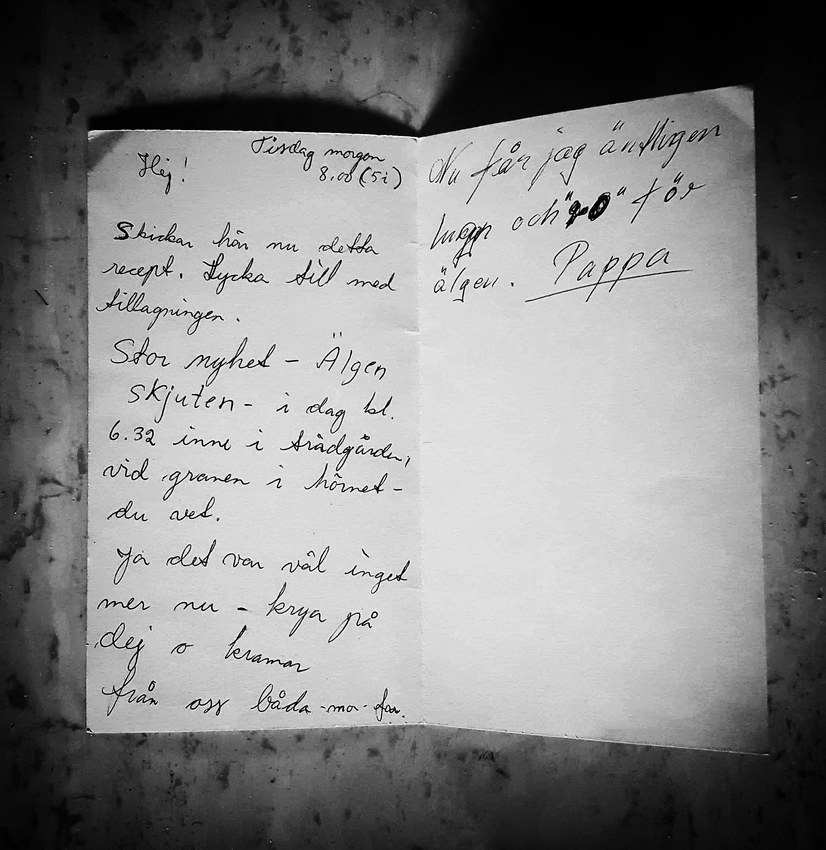 Hej!
Tisdag morgon
8.00 (5i)
Skickar här nu detta
recept. Lycka till med
tillagningen.
Stor nyhet - Älgen
skjuten - i dag kl.
6.32 inne i trädgården,
vid granen i hörnet -
du vet.
Ja det var väl inget
mer nu - krya på
dej o kramar
från oss båda - mor - far.
Nu får jag äntligen
lugn och "ro" för
älgen. Pappa